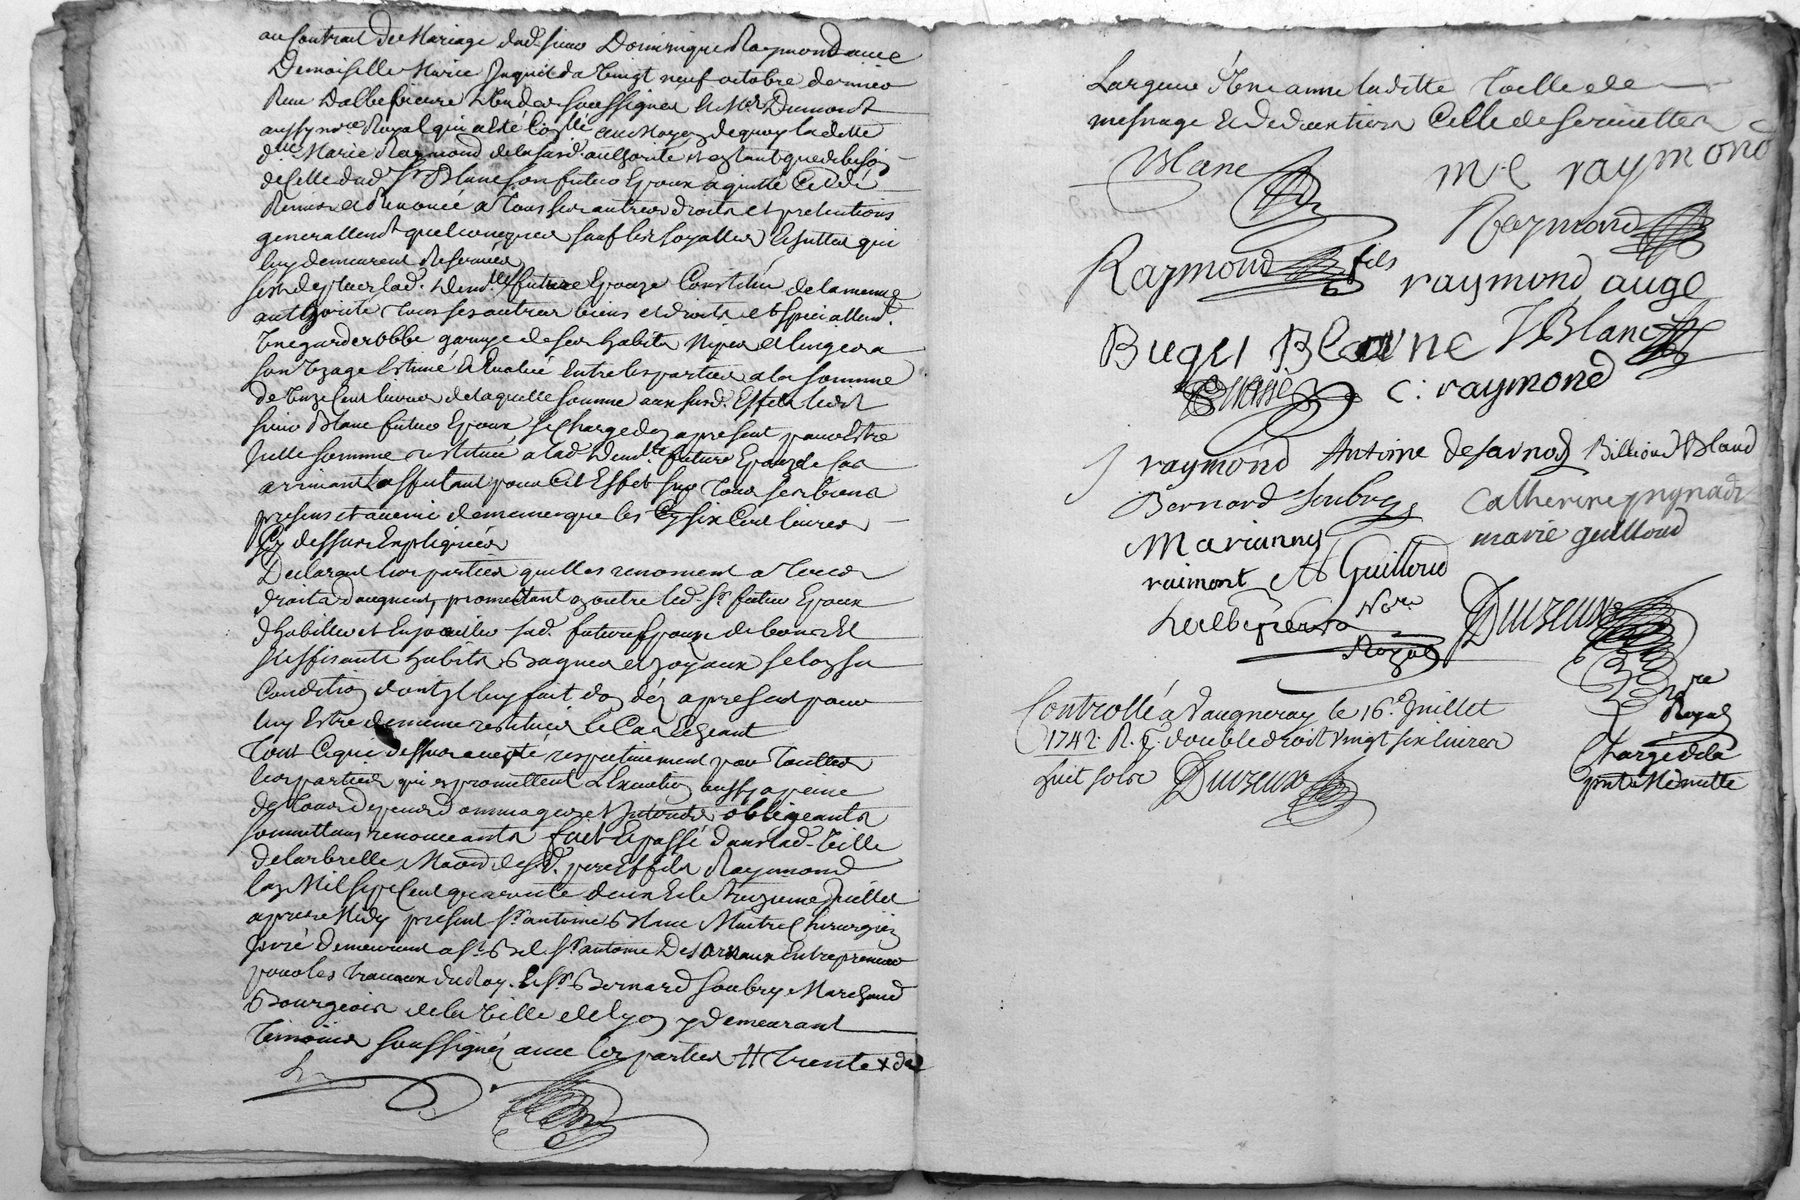 au Contrait de Mariage dud. sieur Dominique Raymond avec
Demoiselle Marie du Vingt neuf octobre dernier
Reçu Dalbepierre L'un des soussignés & Me Dumont
aussy nore Royal qui a été au moyen de quoy ladette
dlle Marie Raymond de la susd. authorité et en tant que de besoin
de celle dud. Sr Blanc son futur Epoux a quitté Cédé
Remis et Renoncé a tous ses autres droits et pretentions
generallemt quelconques sauf les loyalles Echuttes qui
luy demeurent Reservées
se lad. demlle future Epouze Constitue de la meme
authorité tous ses autres biens et droits et specialemt
Une garderobbe garnye de ses habits Nipes et linges a
son Uzage Estimé & Evalué Entre les parties a la somme
de cent livres de laquelle somme aux susd. Effets led.
sieur Blanc futur Epoux se Charge dez apresent pour Estre
Icelle somme restituée a lad. Demlle future Epouze le cas
arrivant l'assurant pour Cet Effet sur tous ses biens
presens et avenir de meme que les six Cent livres
Cy dessus Expliquées
Declarant les parties quelles renoncent a tous
droits d'augment, promettant outre led. Sr futur Epoux
d'habiller et Enjoailler sad. future Epouze de bons Et
suffisants habits Bagues et joyaux selon sa
Condition dont Il luy fait don dez apresent pour
luy Estre de meme restitués le Cas Echeant
tout Ce que dessus accepté respectivement par touttes
les parties qui promettent L'Execution aussy a peine
de tous depens dommages et Interets obligeants
soumettans renonceants fait Et passé dans lad. Ville
de larbrelle Maison desd. Srs pere Et fils Raymond
l'an Mil sept Cent quarante deux Et le treizieme Juillet
apres Midy present Sr antoine Blanc Maitre Chirurgien
Juré demeurant a St Bel Sr antoine Desarnaux Entrepreneur
pour les travaux du Roy. Et Sr Bernard Soubry Marchand
Bourgeois de la Ville de Lyon y demeurant
temoins soussignés avec les parties # trente x de
Largeur & Une aune ladette toille de
mesnage & de deux tiers Celle de serviettes
Blanc
m. raymond
Raymond
Raymond fils
raymond auge
Blanc VBlanc
C: raymond
J raymond Antoine desarnod Billioud Bland
Bernard Soubry Catherine
Marianny marie guilloud
raimont Guilloud
Dalbepierre Nore Royal
Duvzeux
nore Royal
Chargé de la
pnte Minutte
Controllé a Vaugneray le 16e Juillet
1742. R. double droit vingt six livres
huit solz Duvzeux